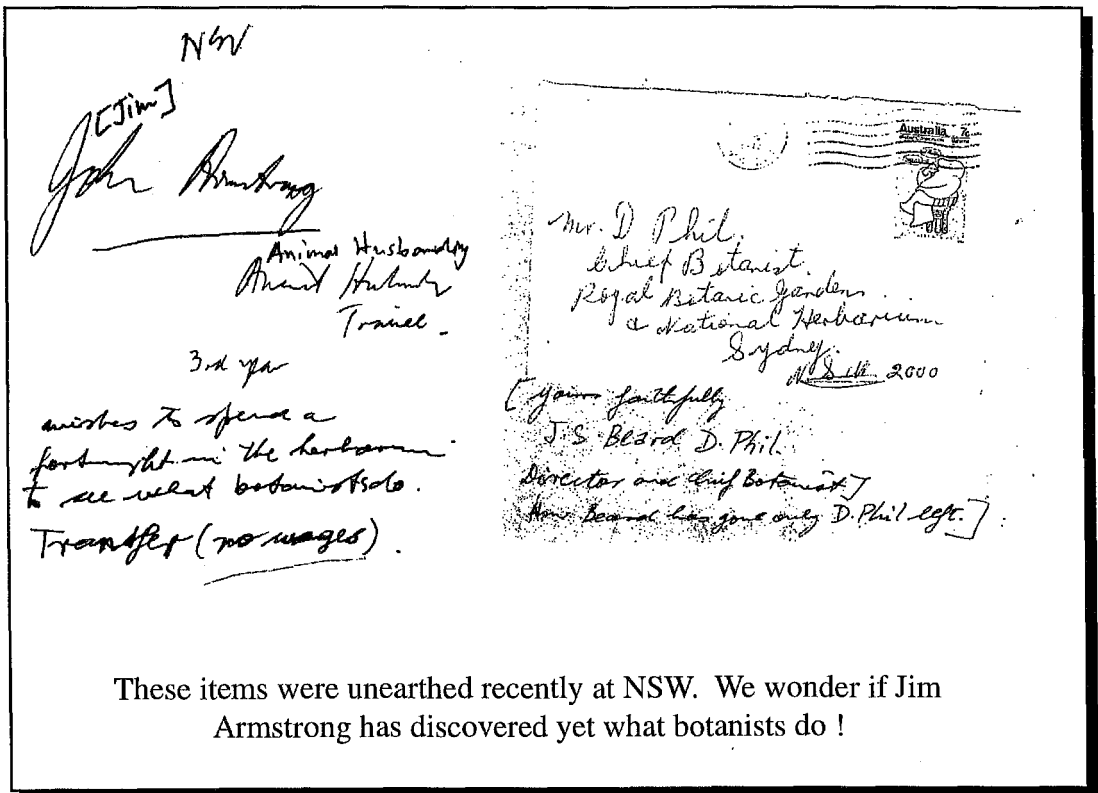 NSW
[Jim]
John Armstrong
Animal Husbandry
Animal Husbandry
Trainee.
3rd year
wishes to spend a
fortnight in the herbarium
to see what botanists do.
Transfer (no wages).
Australia 7c
Mr. D Phil.
Chief Botanist.
Royal Botanic Gardens
& National Herbarium
Sydney.
N.S.W. 2000
[Yours faithfully
J.S. Beard D. Phil.
Director and Chief Botanist]
Now Beard has gone only D. Phil left.]
These items were unearthed recently at NSW. We wonder if Jim
Armstrong has discovered yet what botanists do !